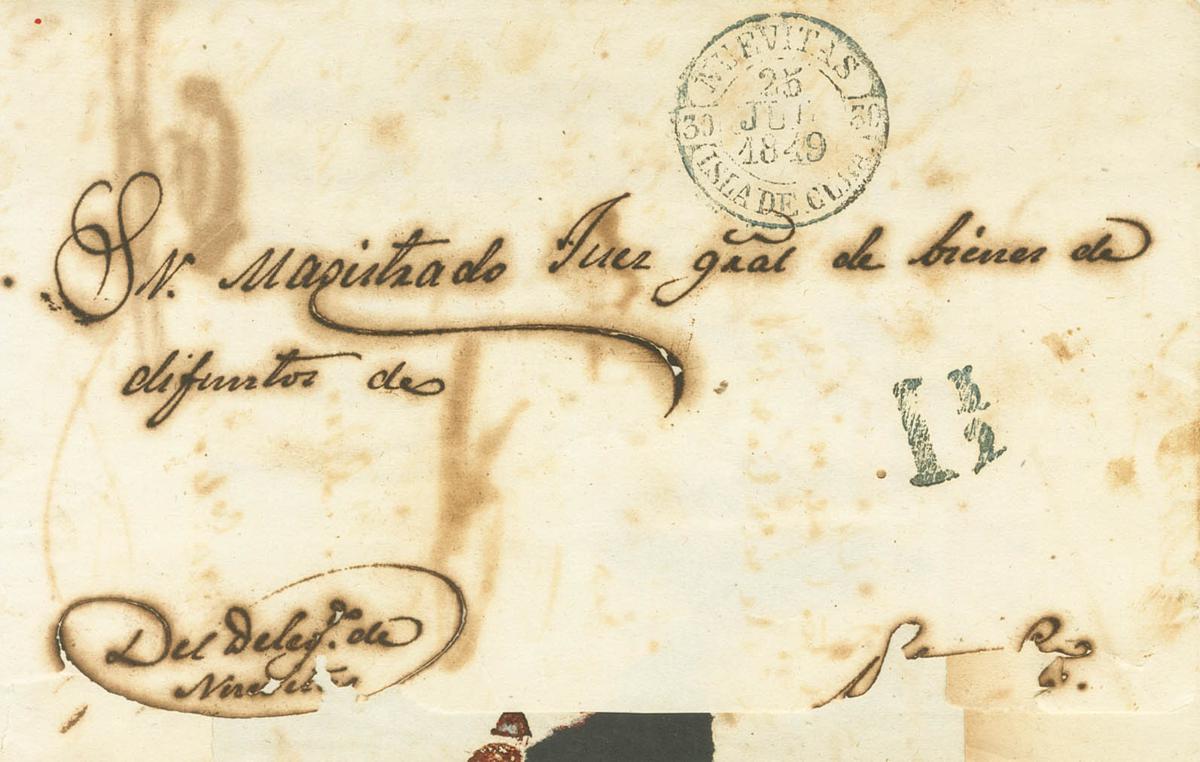 NUEVITAS
25
JUL
1849
30 30
ISLA DE CUBA
Sr. Magistrado Juez gral de bienes de
difuntos de
Del Deleg.do de
Pe Po